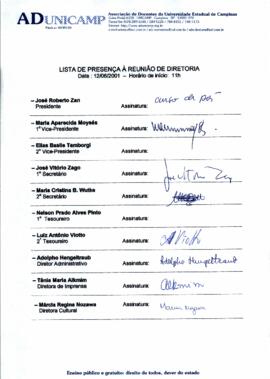 ADUNICAMP
Associação de Docentes da Universidade Estadual de Campinas
LISTA DE PRESENÇA À REUNIÃO DE DIRETORIA
Data : 12/06/2001 – Horário de início: 11h
– José Roberto Zan
Presidente
Assinatura: curso de pós
– Maria Aparecida Moysés
1ª Vice-Presidente
Assinatura:
– Elias Basile Tamborgi
2º Vice-Presidente
Assinatura:
– José Vitório Zago
1º Secretário
Assinatura:
– Maria Cristina B. Wutke
2ª Secretário
Assinatura:
– Nelson Prado Alves Pinto
1º Tesoureiro
Assinatura:
– Luiz Antônio Viotto
2º Tesoureiro
Assinatura: A Viotto
– Adolpho Hengeltraub
Diretor Administrativo
Assinatura: Adolpho Hengeltraub
– Tânia Maria Alkmim
Diretora de Imprensa
Assinatura: Alkmim
– Márcia Regina Nozawa
Diretora Cultural
Assinatura:
Ensino público e gratuito: direito de todos, dever do estado